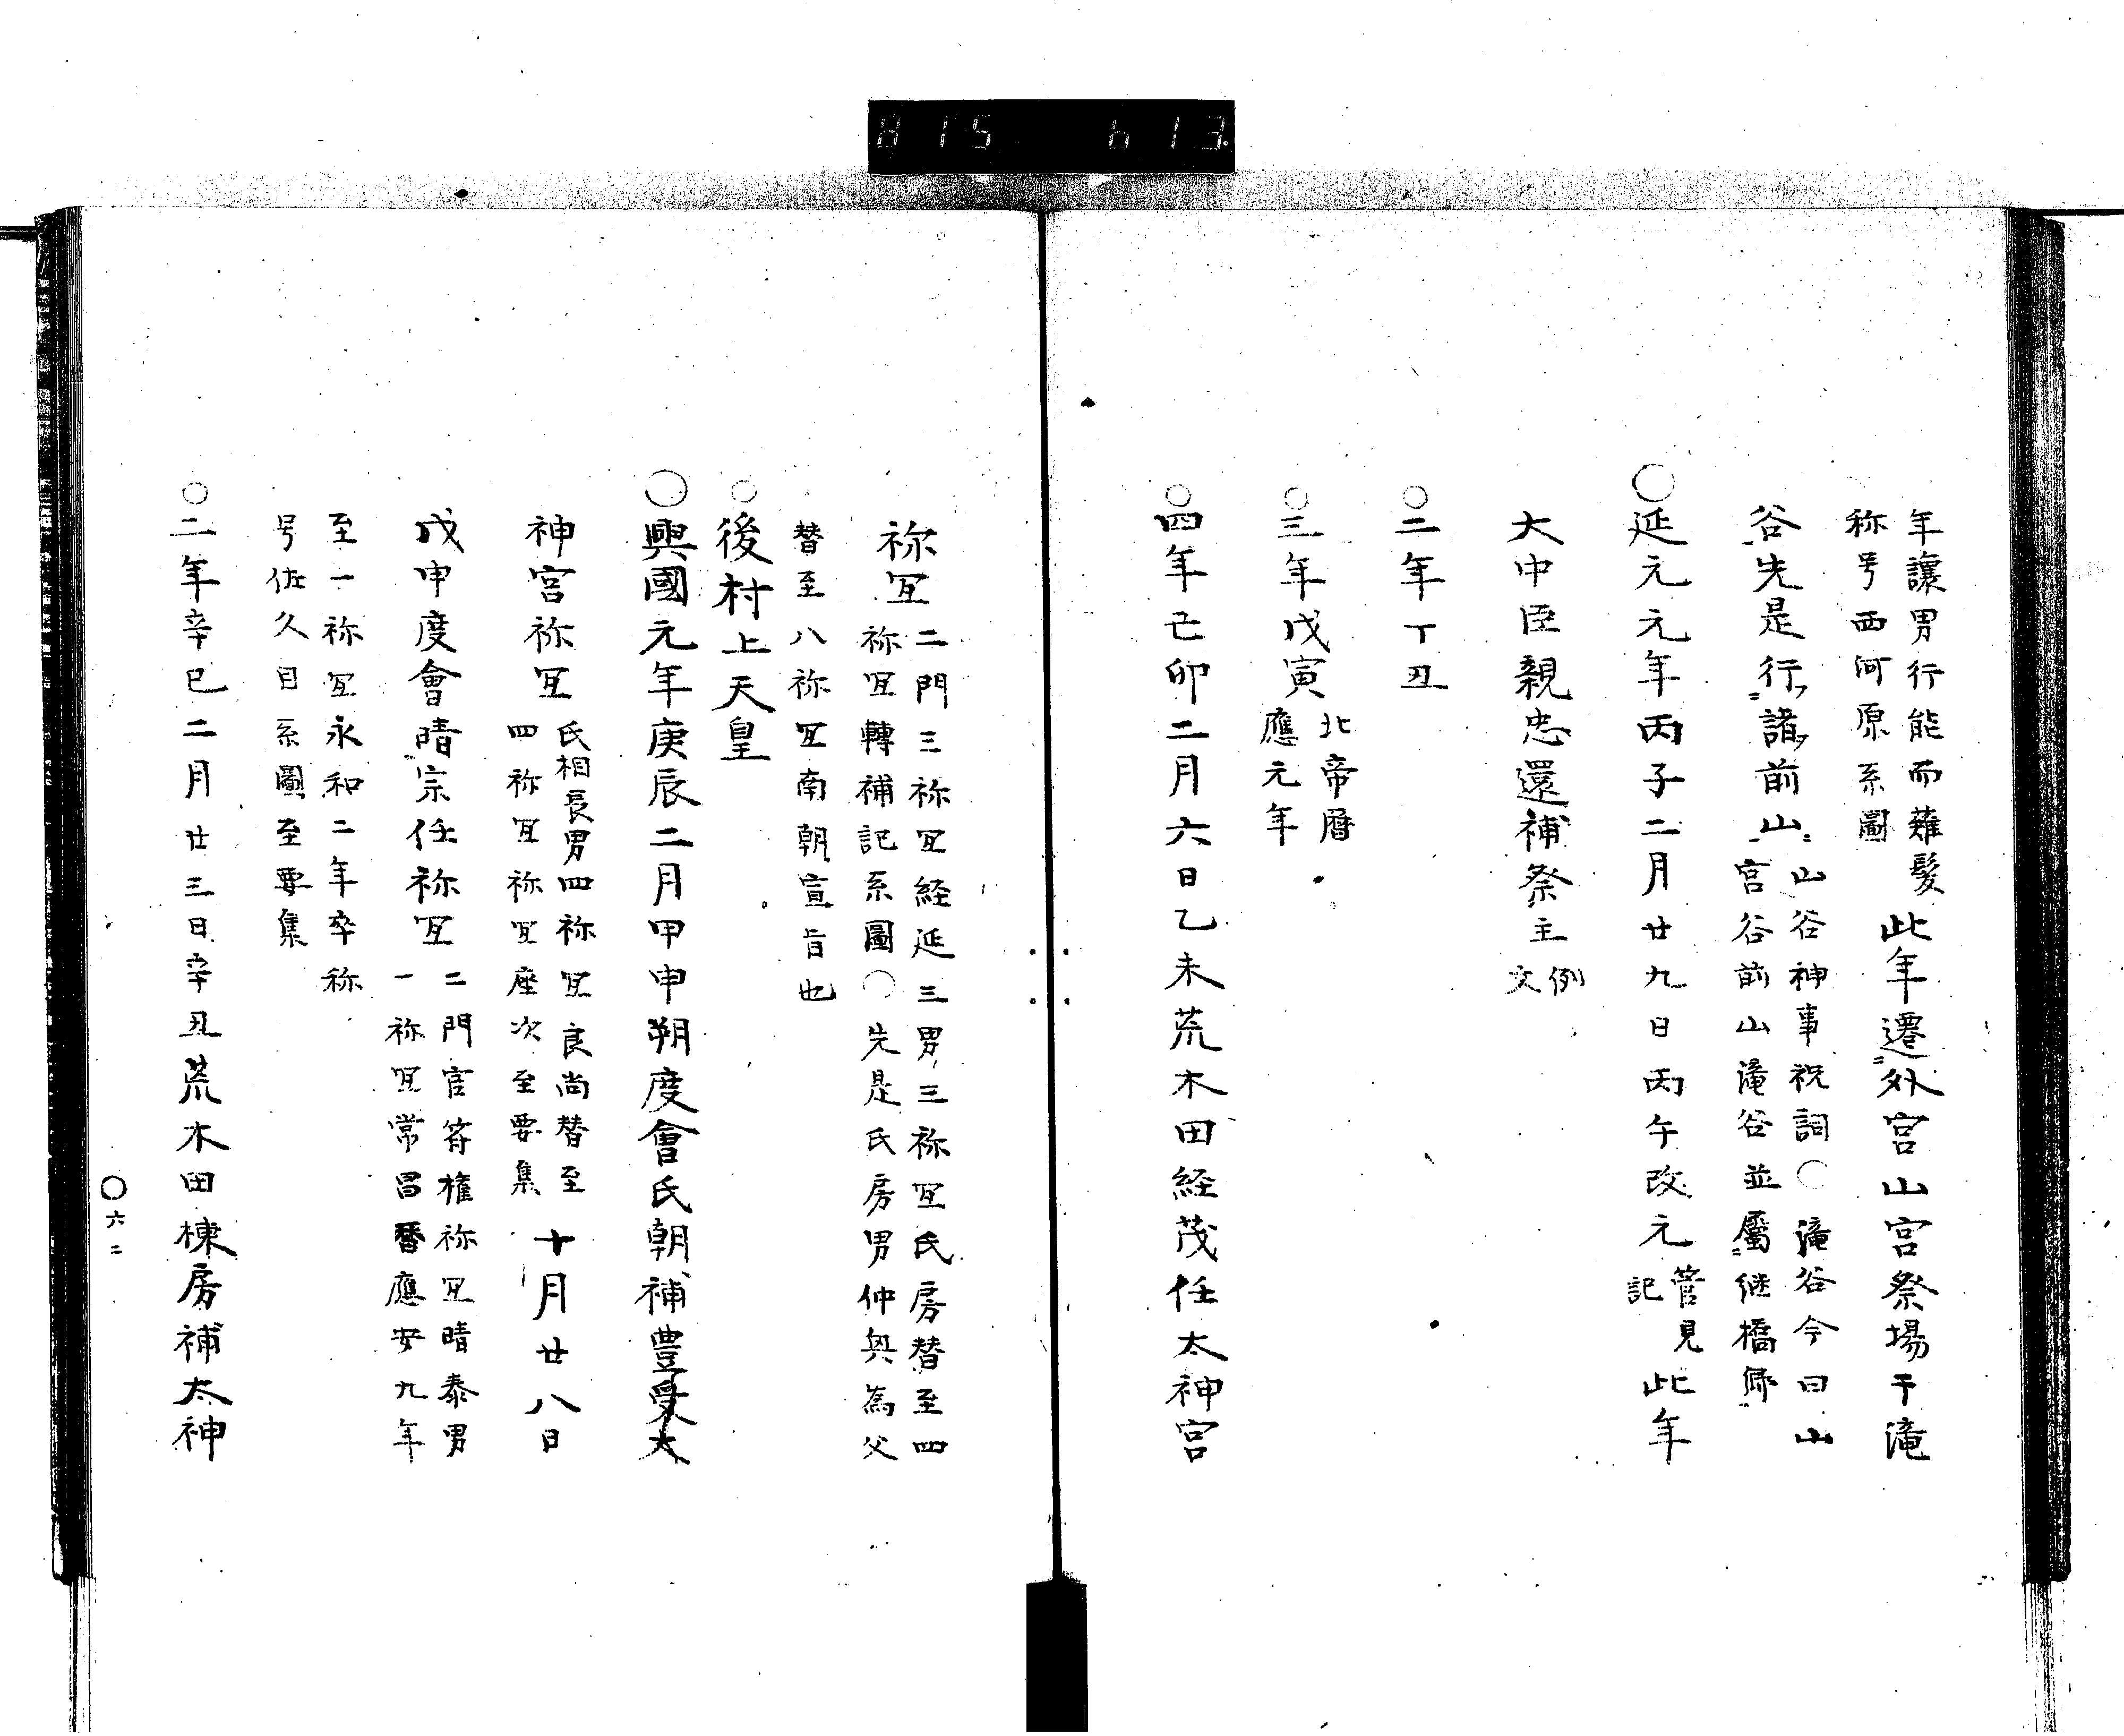 815 613
年讓男行能而薙髮
称号西河原系圖
此年遷外宮山宮祭場于滝
谷先是行諸前山
山谷神事祝詞○滝谷今曰山
宮谷前山滝谷並屬継橋郷
○延元元年丙子二月廿九日丙午改元
管見
記
此年
大中臣親忠還補祭主
例
文
○二年丁丑
○三年戊寅
北帝暦
應元年
○四年己卯二月六日乙未荒木田経茂任太神宮
祢冝
二門三祢冝経延三男三祢冝氏房替至四
祢冝轉補記系圖○先是氏房男仲興為父
替至八祢冝南朝宣旨也
○後村上天皇
○興國元年庚辰二月甲申朔度會氏朝補豊受太
神宮祢冝
氏相長男四祢冝良尚替至
四祢冝祢冝座次至要集
十月廿八日
戊申度會晴宗任祢冝
二門官符権祢冝晴泰男
一祢冝常昌暦應安九年
至一祢冝永和二年卒称
号佐久目系圖至要集
○二年辛巳二月廿三日辛丑荒木田棟房補太神
○六二